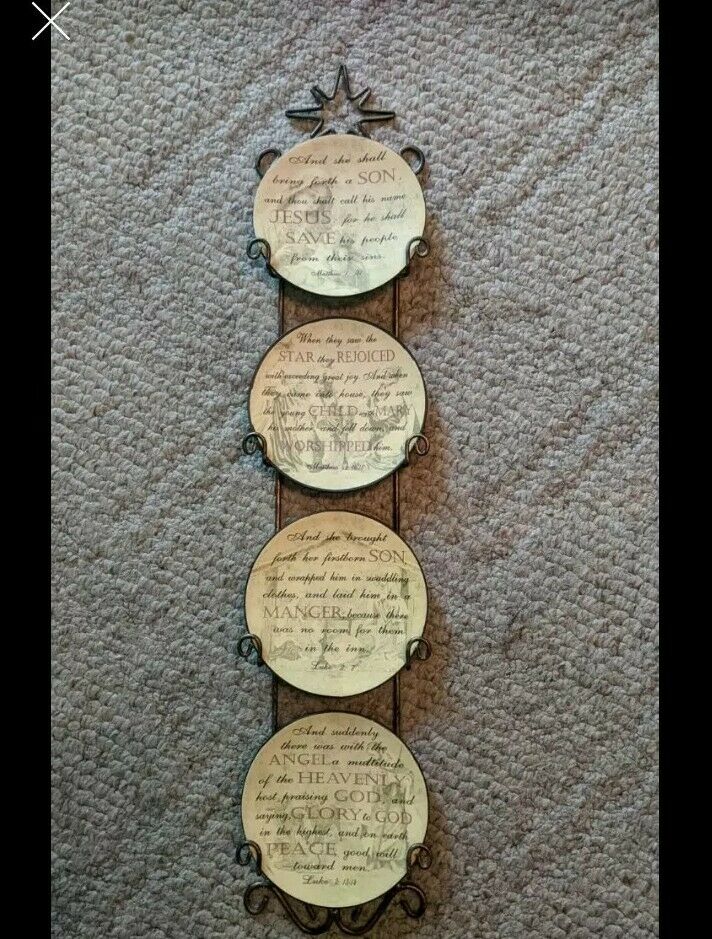 And she shall
bring forth a SON,
and thou shalt call his name
JESUS: for he shall
SAVE his people
from their sins.
Matthew 1:
When they saw the
STAR they REJOICED
with exceeding great joy. And when
they came into house, they saw
the young CHILD with MARY
his mother, and fell down, and
WORSHIPPED him.
Matthew 2:
And she brought
forth her firstborn SON,
and wrapped him in swaddling
clothes, and laid him in a
MANGER, because there
was no room for them
in the inn.
Luke 2: 7
And suddenly
there was with the
ANGEL a multitude
of the HEAVENLY
host, praising GOD, and
saying, GLORY to GOD
in the highest, and on earth
PEACE, good will
toward men.
Luke 2: